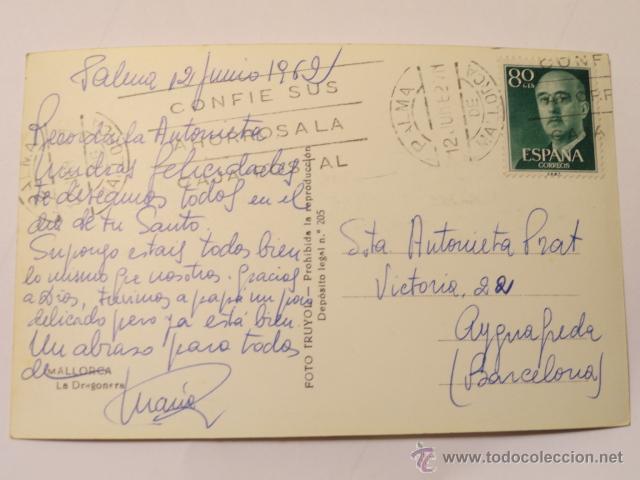 Palma 12 junio 1962
CONFIE SUS
AHORROS A LA
CAJA POSTAL
PALMA DE MALLORCA
12 JUN 62
80 CTS
ESPAÑA
CORREOS
Recordada Antonieta
felicidades
te deseamos todos en el
día de tu Santo.
Supongo estais todos bien
lo mismo que nosotros. Gracias
a Dios, tuvimos a papá un poco
delicado pero ya está bien.
Un abraso para todos
de
MALLORCA
La Dragonera
María
FOTO TRUYOL - Prohibida la reproducción
Depósito legal n.° 205
Sta Antonieta Prat
Victoria, 22
Ayguafreda
(Barcelona)
todocoleccion
www.todocoleccion.net